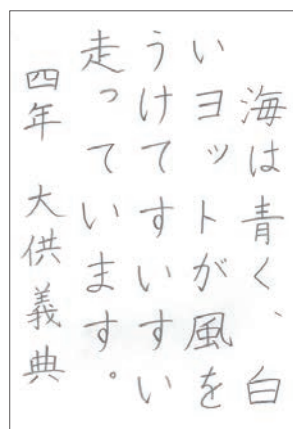 海は青く、白
いヨットが風を
うけてすいすい
走っています。
四年 大供義典